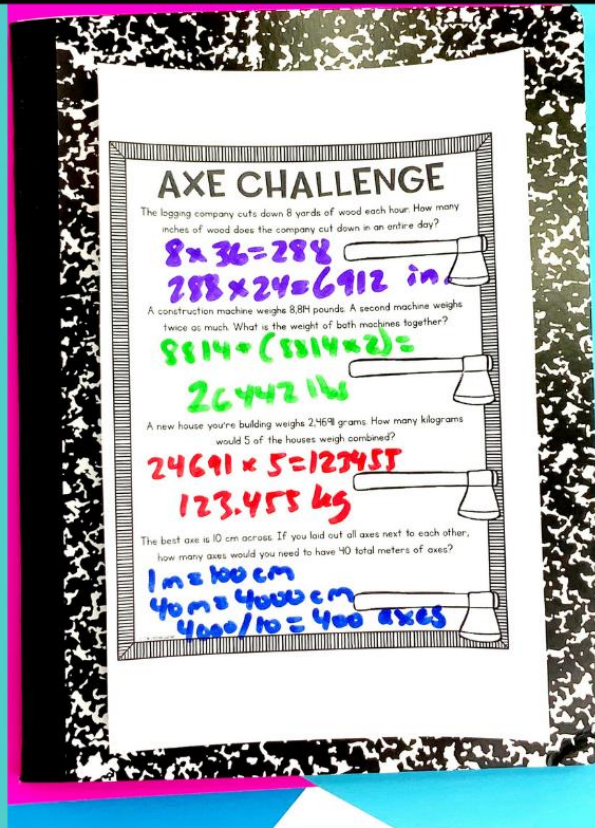 AXE CHALLENGE
The logging company cuts down 8 yards of wood each hour. How many
inches of wood does the company cut down in an entire day?
8x 36=288
288 x24=6912 in.
A construction machine weighs 8,814 pounds. A second machine weighs
twice as much. What is the weight of both machines together?
8814+(8814x2)=
26442 lbs
A new house you're building weighs 2,4691 grams. How many kilograms
would 5 of the houses weigh combined?
24691 x 5=123455
123.455 kg
The best axe is 10 cm across. If you laid out all axes next to each other,
how many axes would you need to have 40 total meters of axes?
1m=100 cm
40m=4000 cm
4000/10=400 axes